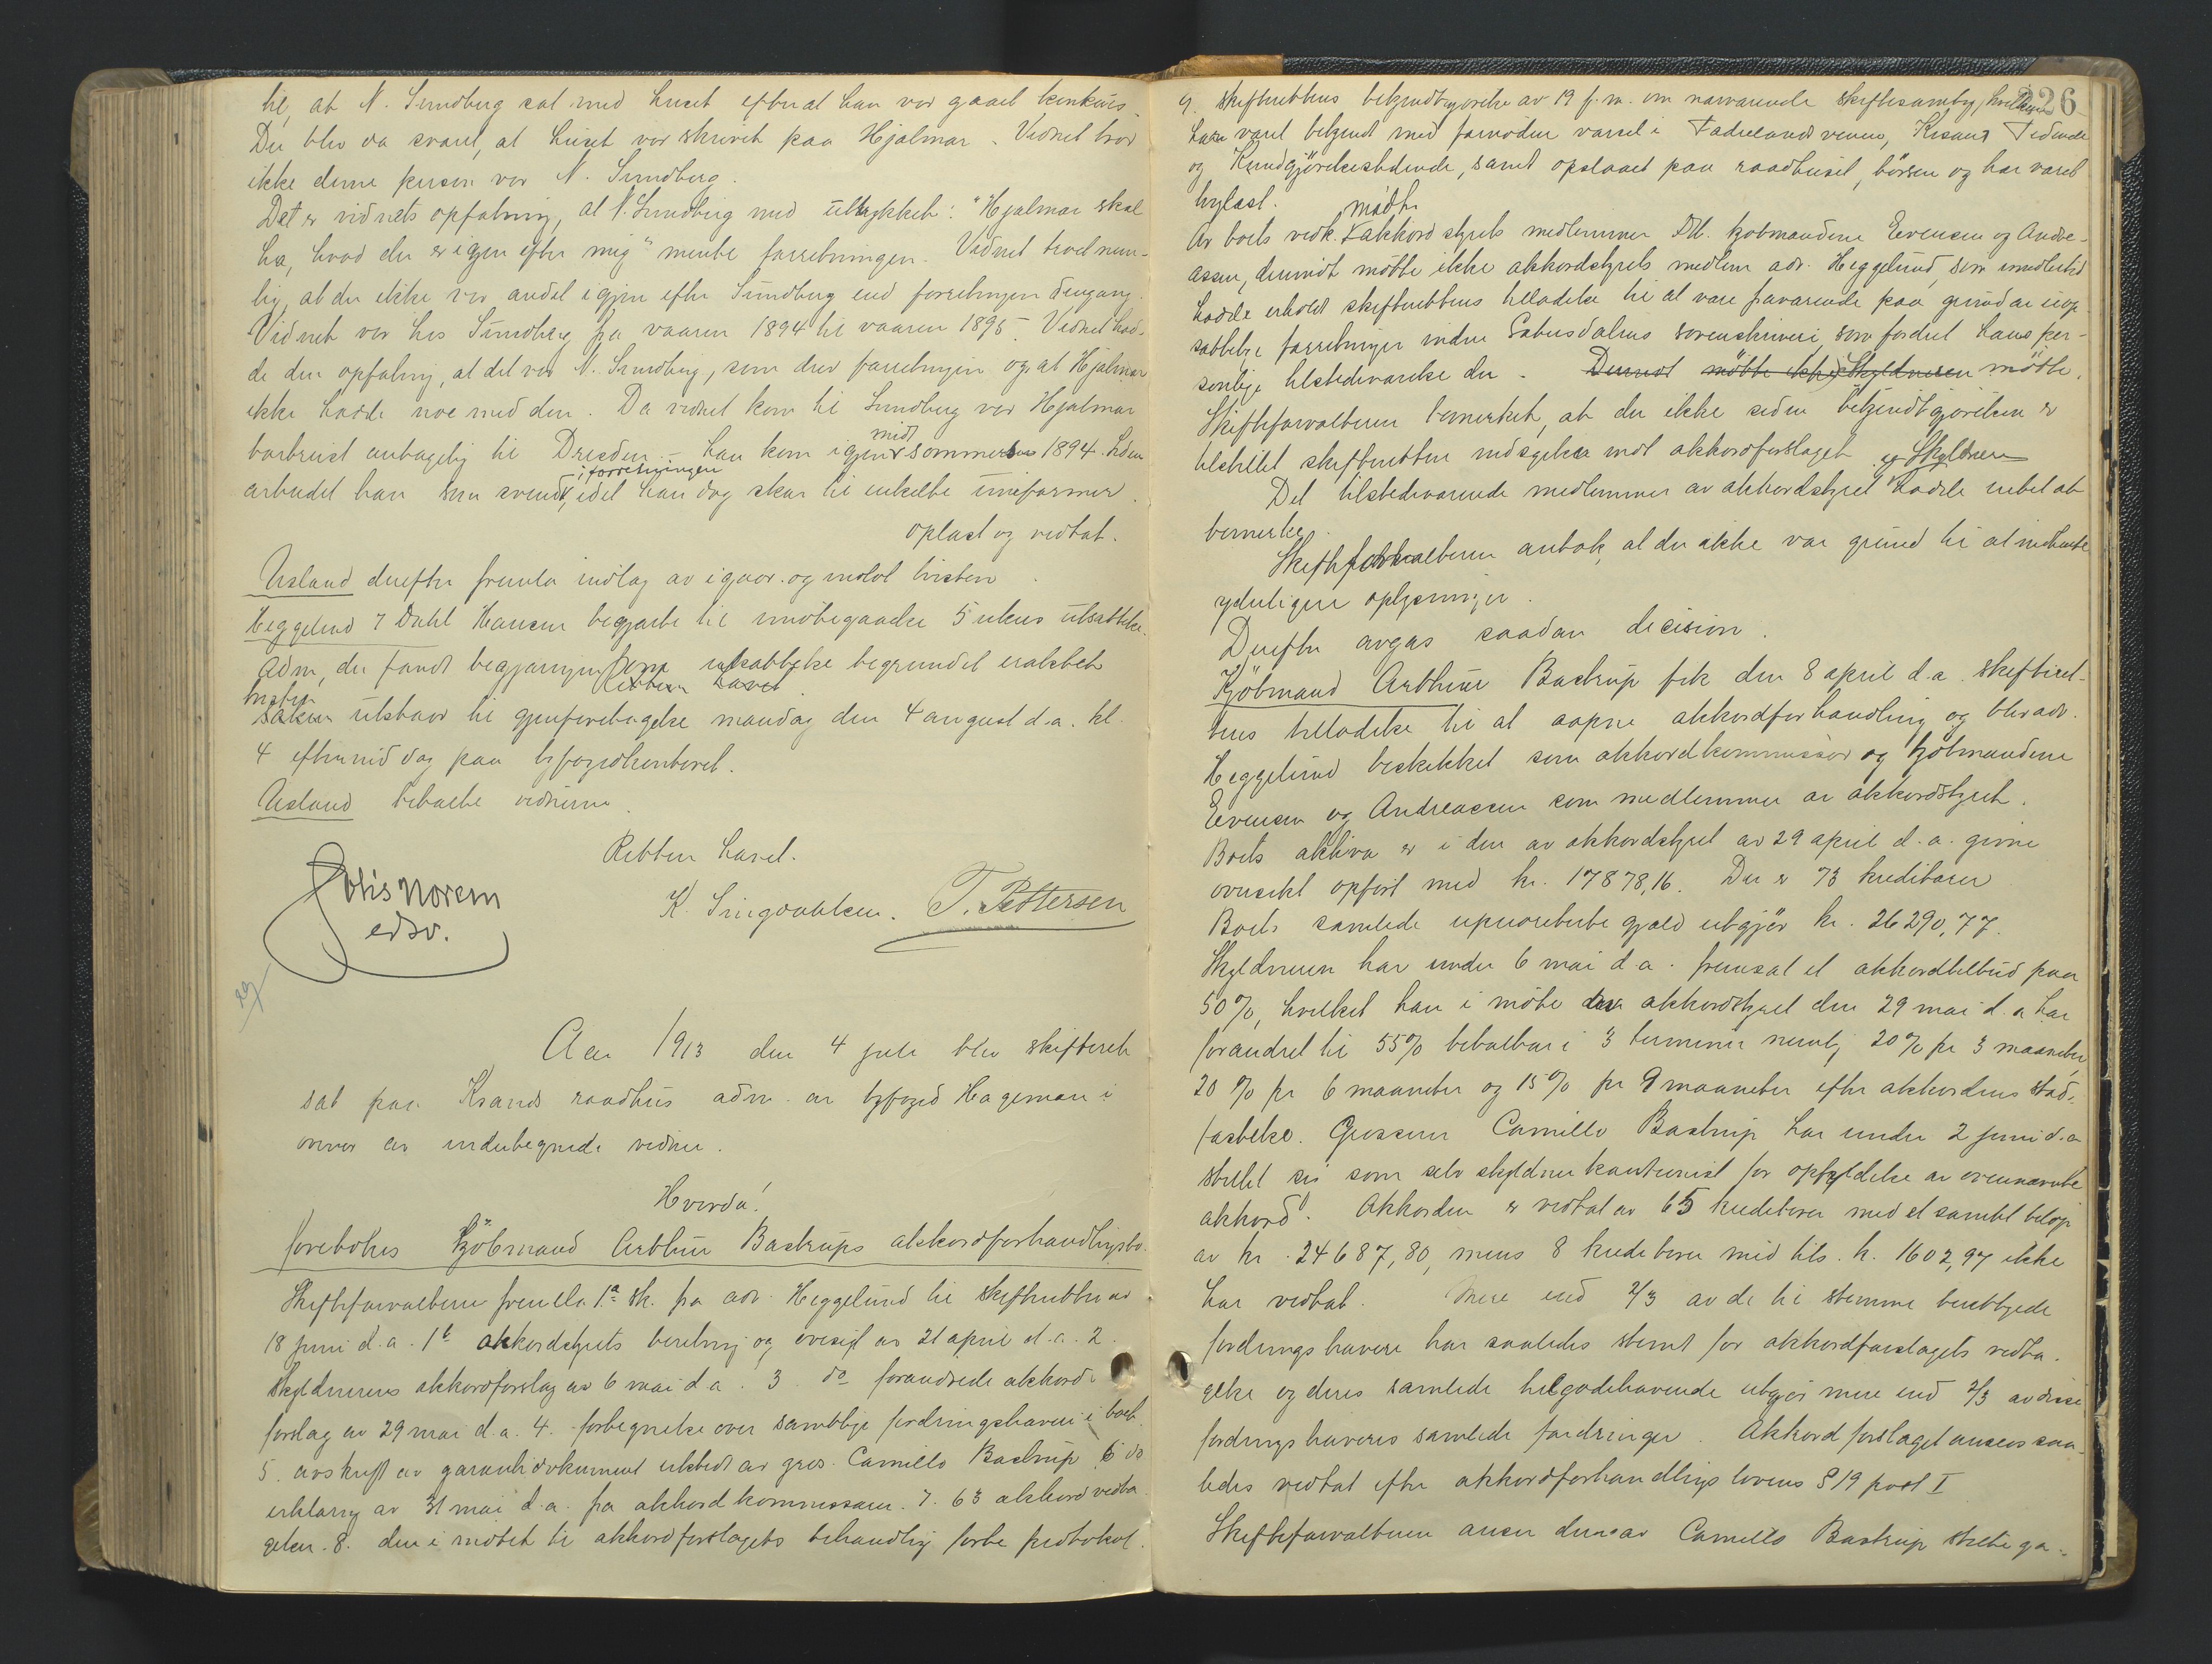 til, at N. Sundberg sat med huset efterat han var gaaet konkurs.
Der blev da svaret, at huset var skrevet paa Hjalmar. Vidnet tror
ikke denne person var N. Sundberg.
Det er vidnets opfatning, at N. Sundberg med uttrykket: "Hjalmar skal
ha, hvad der er igjen efter mig" mente forretningen. Vidnet trod nem-
lig, at der ikke var andet igjen efter Sundberg end forretningen dengang.
Vidnet var hos Sundberg fra vaaren 1894 til vaaren 1895. Vidnet had-
de den opfatning, at det var N. Sundberg, som drev forretningen og at Hjalmar
ikke hadde noe med den. Da vidnet kom til Sundberg var Hjalmar
bortreist antagelig til Dresden. Han kom igjen midtsommers 1894. Siden
i forretningen
arbeidet han som svend, idet han dog skar til enkelte uniformer.
Oplæst og vedtat.
Usland derefter fremla indlæg av igaar og indlot tvisten.
Heggelund f Dahl Hansen begjærte til imøtegaaelse 5 ukers utsættelse.
Adm, der fandt begjæringen om utsættelse begrundet erakted
Retten hævet
tvisten
saken utstaar til gjenforetagelse mandag den 4 august d.a. kl.
4 eftermiddag paa byfogdkontoret.
Usland betalte vidnerne.
Retten hævet.
Otis Norem
edsv.
K. Syvertsen. T. Pettersen
Aar 1913 den 4 juli blev skifteret
sat paa Krsands raadhus adm. av byfogd Hageman i
overvær av undertegnede vidner.
Hvorda!
foretokes Kjöbmand Arthur Bastrups akkordforhandlingsbo.
Skifteforvalteren fremla 1a sk. fra adv. Heggelund til skifteretten av
18 juni d.a. 1b akkordstyrets beretning og oversigt av 21 april d.a. 2.
skyldnerens akkordforslag av 6 mai d.a. 3 do forandrede akkord-
forslag av 29 mai d.a. 4. fortegnelse over samtlige fordringshavere i boet
5. avskrift av garantidokument utstedt av gros. Camillo Bastrup 6 do
erklæring av 31 mai d.a. fra akkordkommissæren. 7. 63 akkordvedta-
gelser. 8. den i møtet til akkordforslagets behandling førte protokol.
226
9. skifterettens bekjendtgjørelse av 19 f.m. om nærværende skiftesamling, hvilken
har været bekjendt med fornøden varsel i Fædrelandsvennen, Krsands Tidende
og Kundgjörelsestidende, samt opslaaet paa raadhuset, börsen og har været
tinglæst.
mödte
Av boets vedk. akkordstyrets medlemmer DHr. kjøbmændene Evensen og Andre-
assen, derimot mötte ikke akkordstyrets medlem adv. Heggelund, som imidlertid
hadde erholdt skifterettens tilladelse til at være fraværende paa grund av uop-
sættelige forretninger inden Sætesdalens sorenskriveri, som fordret hans per-
sonlige tilstedeværelse der. Derimot mötte ikke Skyldneren mötte.
Skifteforvalteren bemerket, at der ikke siden bekjendtgjørelsen er
tilstillet skifteretten indsigelser mot akkordforslaget. og Skyldneren
Det tilstedeværende medlemmer av akkordstyret hadde intet at
bemerke.
Skifteforvalteren antok, at der ikke var grund til at indhente
yderligere oplysninger.
Derefter avgas saadan decision.
Kjöbmand Arthur Bastrup fik den 8 april d.a. skifteret-
tens tilladelse til at aapne akkordforhandling og blev adv.
Heggelund beskikket som akkordkommissær og kjöbmændene
Evensen og Andreassen som medlemmer av akkordstyret.
Boets aktiva er i den av akkordstyret av 29 april d.a. givne
oversikt opført med kr. 17878,16. Der er 73 kreditorer
Boets samlede uprioriterte gjæld utgjör kr. 26290,77.
Skyldneren har under 6 mai d.a. fremsat et akkordtilbud paa
50%, hvilket han i møte av akkordstyret den 29 mai d.a. har
forandret til 55% betalbar i 3 terminer nemlig 20% pr 3 maaneder,
20% pr 6 maaneder og 15% pr 9 maaneder efter akkordens stad-
fæstelse. Grosserer Camillo Bastrup har under 2 juni d.a.
stillet sig som selvskyldnerkautionist for opfyldelse av ovennævnte
akkord. Akkorden er vedtat av 65 kreditorer med et samlet beløp
av kr. 24687,80, mens 8 kreditorer med tils. kr. 1602,97 ikke
har vedtat. Mere end 2/3 av de til stemme berettigede
fordringshavere har saaledes stemt for akkordforslagets vedta-
gelse og deres samlede tilgodehavende utgjør mere end 2/3 av disse
fordringshaveres samlede fordringer. Akkordforslaget ansees saa-
ledes vedtat efter akkordforhandlings lovens § 19 post I
Skifteforvalteren anser den av Camillo Bastrup stillede ga-